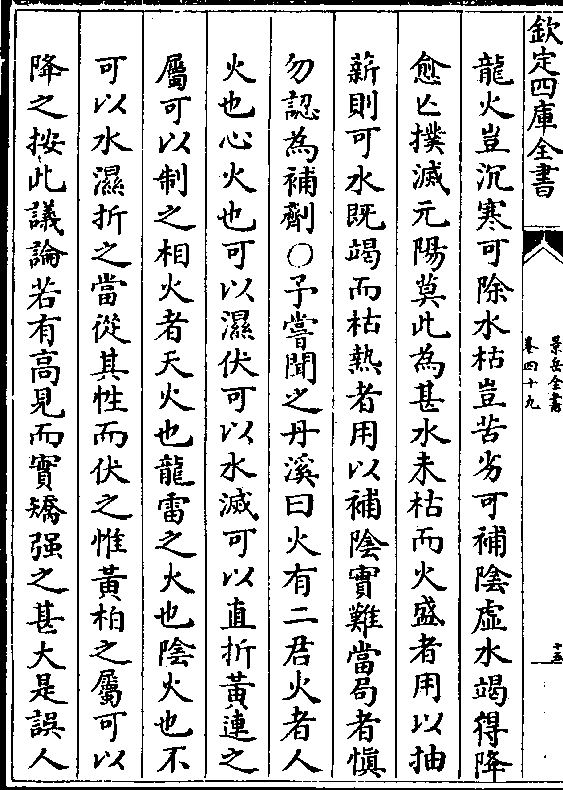 欽定四庫全書
景岳全書
卷四十九
十五
龍火豈沉寒可除水枯豈苦劣可補陰虛水竭得降
愈亡撲滅元陽莫此為甚水未枯而火盛者用以抽
薪則可水既竭而枯熱者用以補陰實難當局者慎
勿認為補劑○予嘗聞之丹溪曰火有二君火者人
火也心火也可以濕伏可以水滅可以直折黃連之
屬可以制之相火者天火也龍雷之火也陰火也不
可以水濕折之當從其性而伏之惟黃柏之屬可以
降之按此議論若有高見而實矯强之甚大是誤人